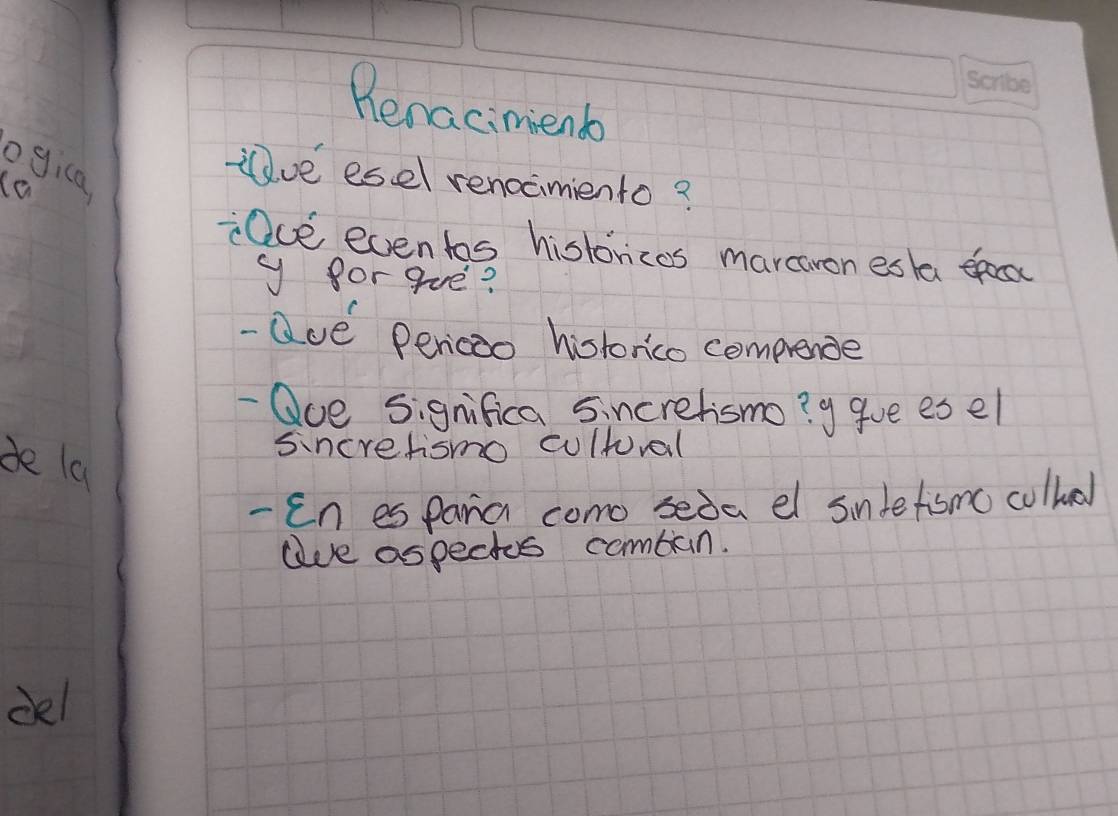 Scribe
Renacimiento
-¿Qué es el renacimiento?
-¿Qué eventos históricos marcaron esta época
y por qué?
-Qué Periodo historico comprende
-Que significa sincretismo? y que es el
sincretismo cultural
-En españa como seda el sintetismo cultural
Que aspectos cambian.
ogica,
ca
de la
del